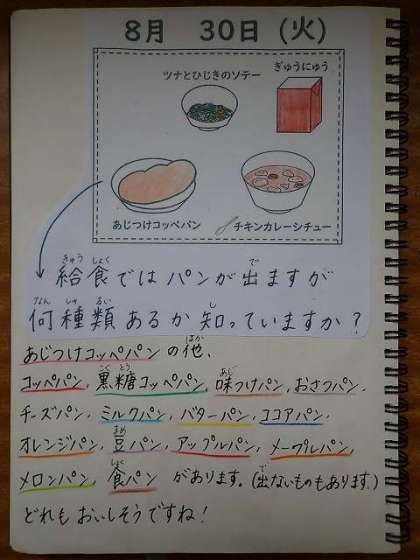 8月 30日（火）
ツナとひじきのソテー
ぎゅうにゅう
あじつけコッペパン
チキンカレーシチュー
給食ではパンが出ますが
何種類あるか知っていますか？
あじつけコッペパンの他、
コッペパン、黒糖コッペパン、味つけパン、おさつパン、
チーズパン、ミルクパン、バターパン、ココアパン、
オレンジパン、豆パン、アップルパン、メープルパン、
メロンパン、食パン があります。（出ないものもあります。）
どれもおいしそうですね！